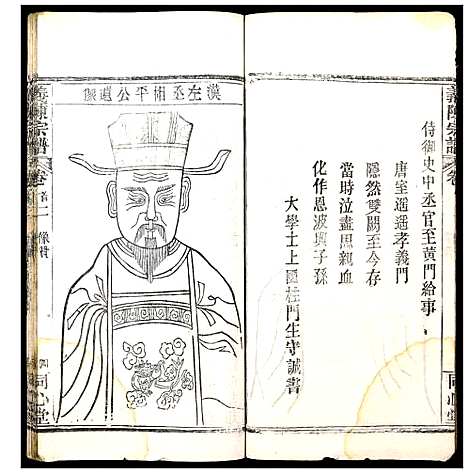 義陳宗譜
卷
侍御史中丞官至黃門給事
唐室遥遥孝義門
隱然雙闕至今存
當時泣盡思親血
化作恩波與子孫
大學士上圓桂門生守誠書
同心堂
漢左丞相平公遺像
義陳宗譜
卷首一
像贊
同心堂